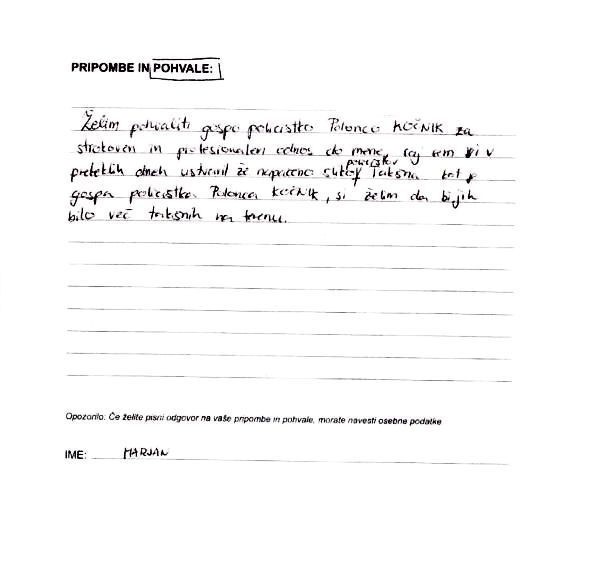 PRIPOMBE IN POHVALE:
Želim pohvaliti gospo policistko Polonco KOČNIK za
strokoven in profesionalen odnos do mene, saj sem si v
policistov
preteklih dneh ustvaril že napačno takšna kot je
gospa policistka Polonca KOČNIK, si želim da bi jih
bilo več takšnih na terenu.
Opozorilo: Če želite pisni odgovor na vaše pripombe in pohvale, morate navesti osebne podatke
IME: MARJAN